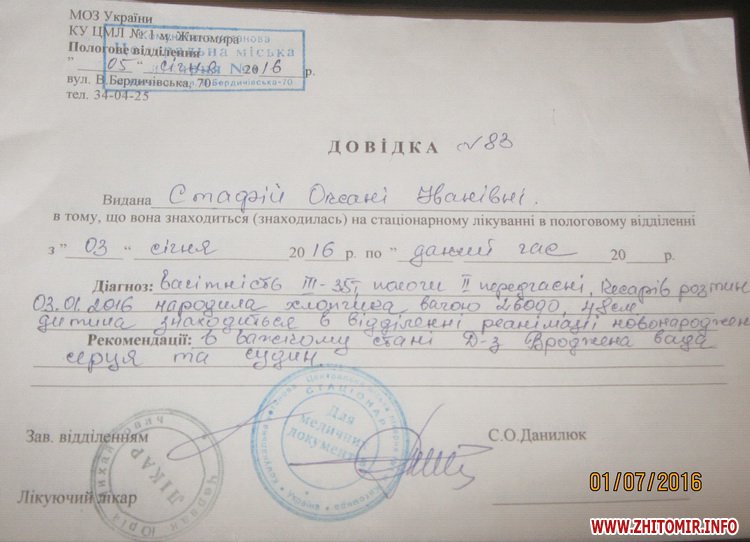 МОЗ України
КУ ЦМЛ № 1 м. Житомира
Пологове відділення
" 05 " січня 2016 р.
вул. В.Бердичівська, 70
тел. 34-04-25
Центральна міська
Бердичівська-70
ДОВІДКА №83
Видана Стафій Оксані Іванівні.
в тому, що вона знаходиться (знаходилась) на стаціонарному лікуванні в пологовому відділенні
з " 03 " січня 2016 р. по " даний час 20 р.
Діагноз: Вагітність III-35т, пологи II передчасні, Кесарів розтин
03.01.2016 народила хлопчика вагою 2600, 48см
дитина знаходиться в відділенні реанімації новонароджен
Рекомендації: в важкому стані Д-з Вроджена вада
серця та судин.
Зав. відділенням С.О.Данилюк
Лікуючий лікар
СТАЦІОНАР
Для
медичних
документів
ЛІКАР
Юрій
01/07/2016
WWW.ZHITOMIR.INFO